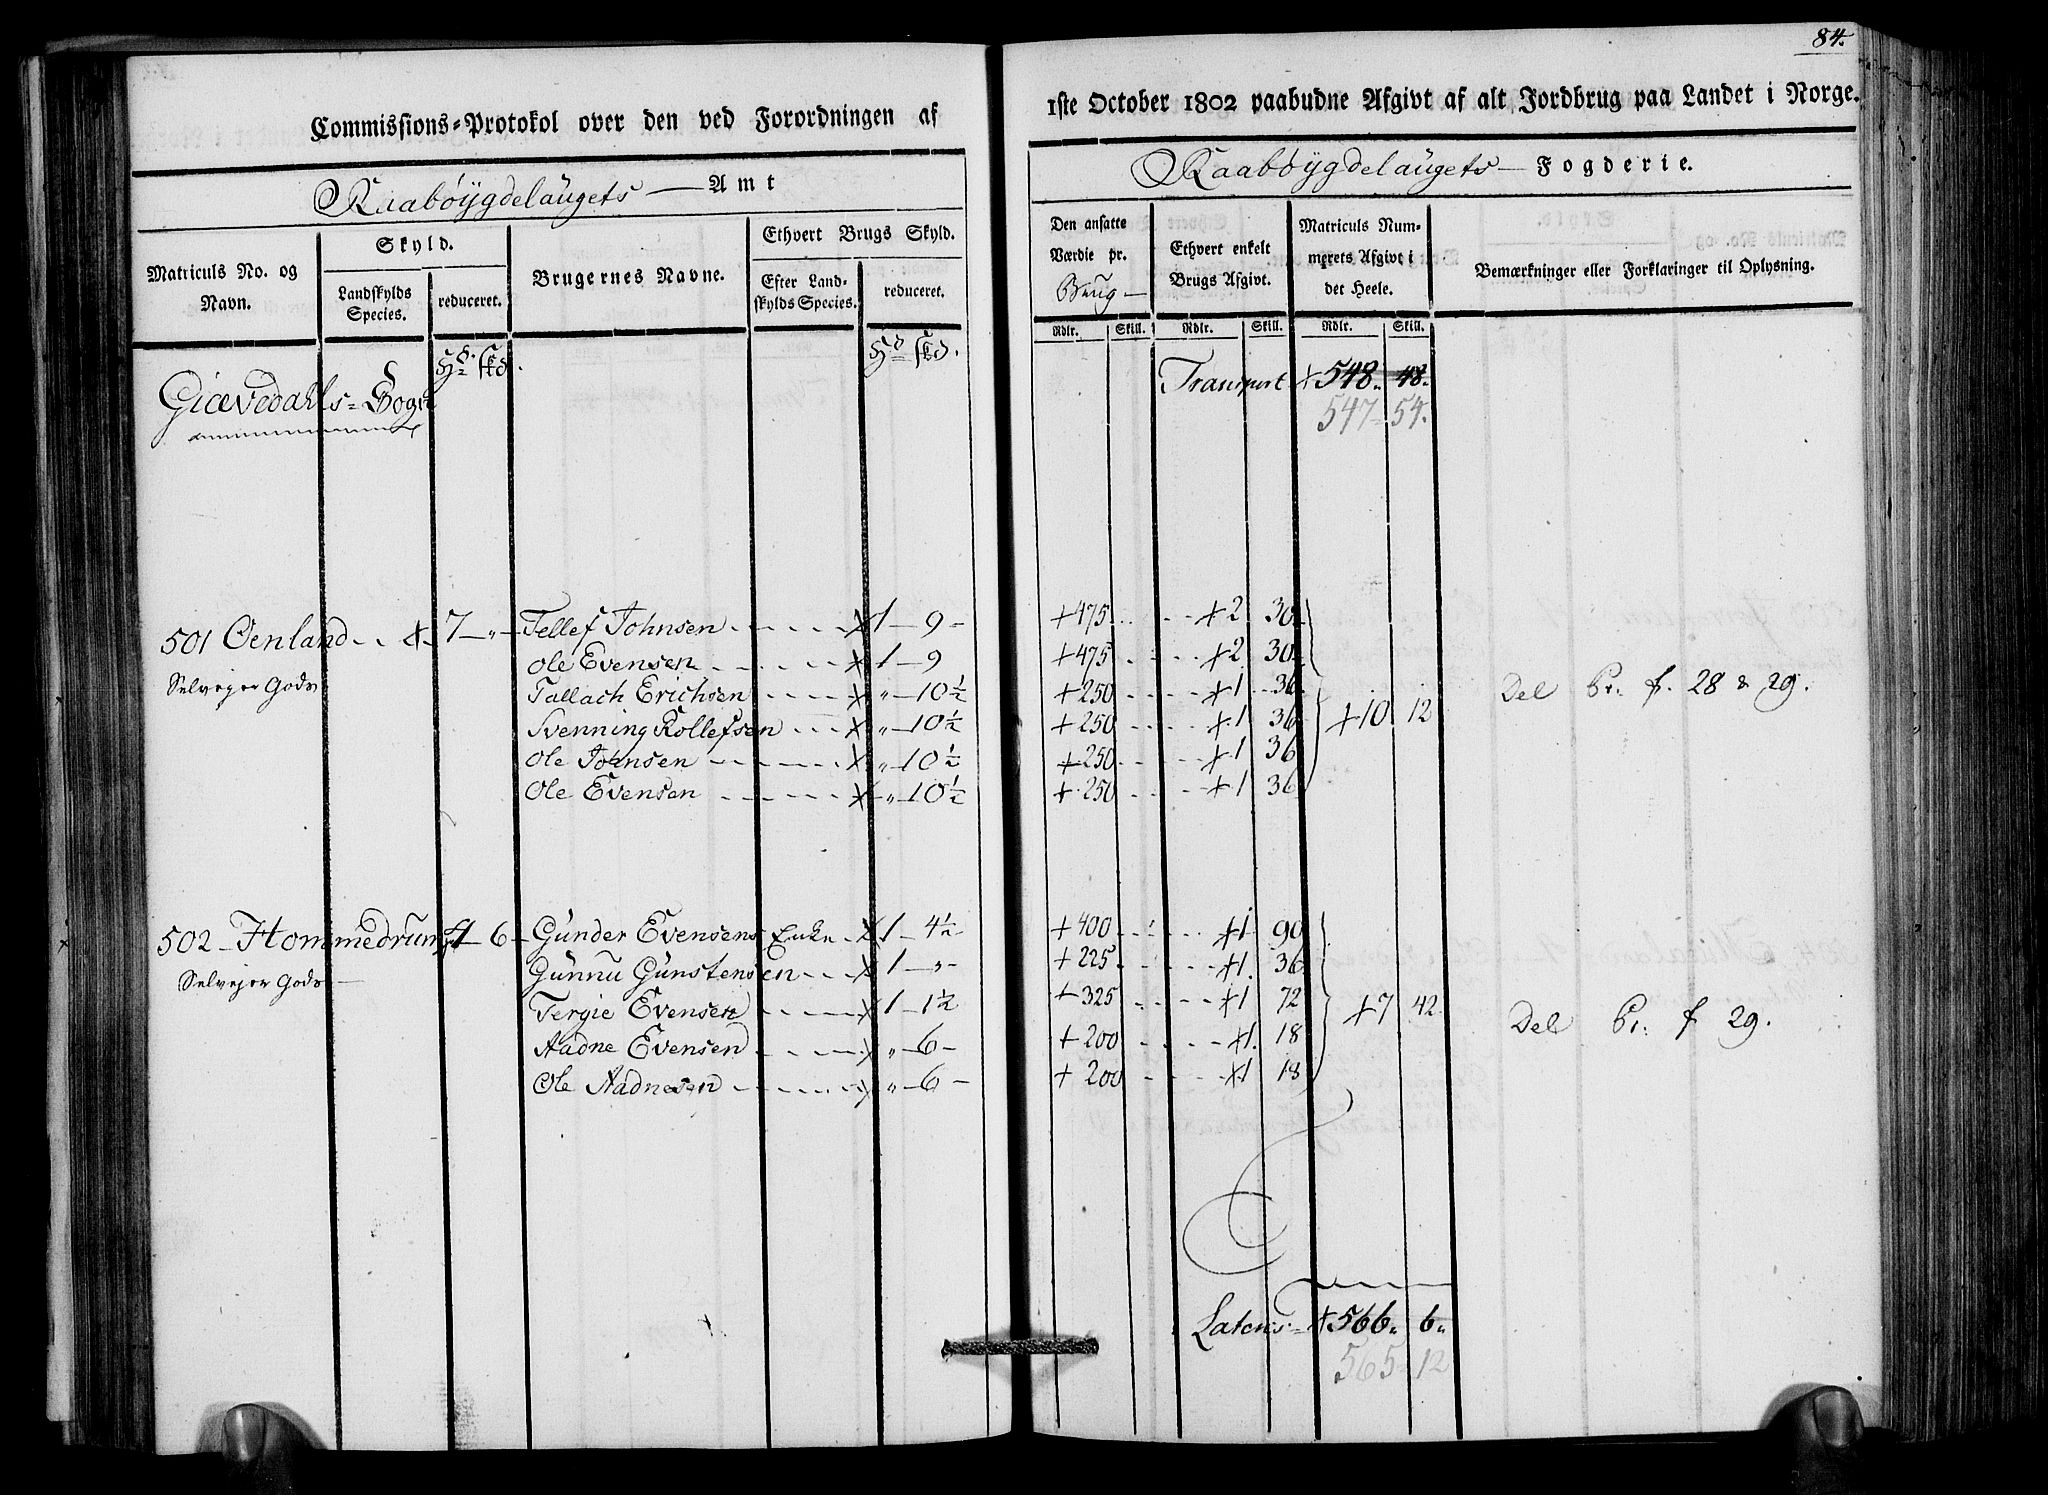 84.
Commissions=Protokol over den ved Forordningen af 1ste October 1802 paabudne Afgivt af alt Jordbrug paa Landet i Norge.
Raabøÿgdelaugets — Amt
Raabøÿgdelaugets — Fogderie.
Matriculs No. og Navn.
Skyld.
Landskylds Species.
reduceret.
Brugernes Navne.
Ethvert Brugs Skyld.
Efter Landskylds Species.
reduceret.
Den ansatte Værdie pr. Brug —
Ethvert enkelt Brugs Afgivt.
Matriculs Nummerets Afgivt i det Heele.
Bemærkninger eller Forklaringer til Oplysning.
Rdlr. Skill. Rdlr. Skill. Rdlr. Skill.
Hd. skd. Hd skd.
Giævedahls= Sogn
Transport + 548. 48.
547 54.
501 Øenland . . 7 — „ — Tellef Johnsen 1 — 9 — + 475 + 2 30
Ole Evensen 1 — 9 + 475 + 2 30
Selvejer Gods
Tallach Erichsen „ — 10 ½ + 250 + 1 36
Svenning Rollefsen „ — 10 ½ + 250 + 1 36 + 10 12 Del Pr: f. 28 & 29.
Ole Johnsen „ — 10 ½ + 250 + 1 36
Ole Evensen „ — 10 ½ + 250 + 1 36
502 — Hommedrum 4 — 6 — Gunder Evensens Enke 1 — 4 ½ + 400 + 1 90
Gunnu Gunstensen 1 — „ — + 225 + 1 36
Selvejer Gods —
Tergie Evensen 1 — 1 ½ + 325 + 1 72 + 7 42 Del Pr: f 29.
Aadne Evensen „ — 6 — + 200 + 1 18
Ole Aadnesen „ — 6 — + 200 + 1 18
Latens + 566. 6.
565 12